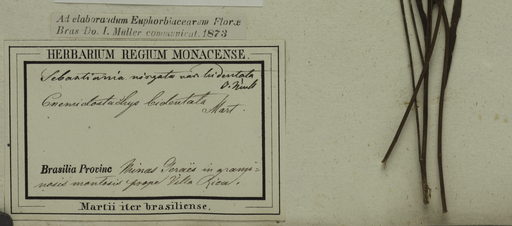 Ad elaborandum Euphorbiacearum Floræ
Bras Do. I. Müller communicat. 1873
HERBARIUM REGIUM MONACENSE.
Sebastiania virgata var. bidentata
Cnemidostachys bidentata
Mart.
Brasilia Provinc Minas Geraës in grami-
nosis montosis prope Villa Rica.
Martii iter brasiliense.